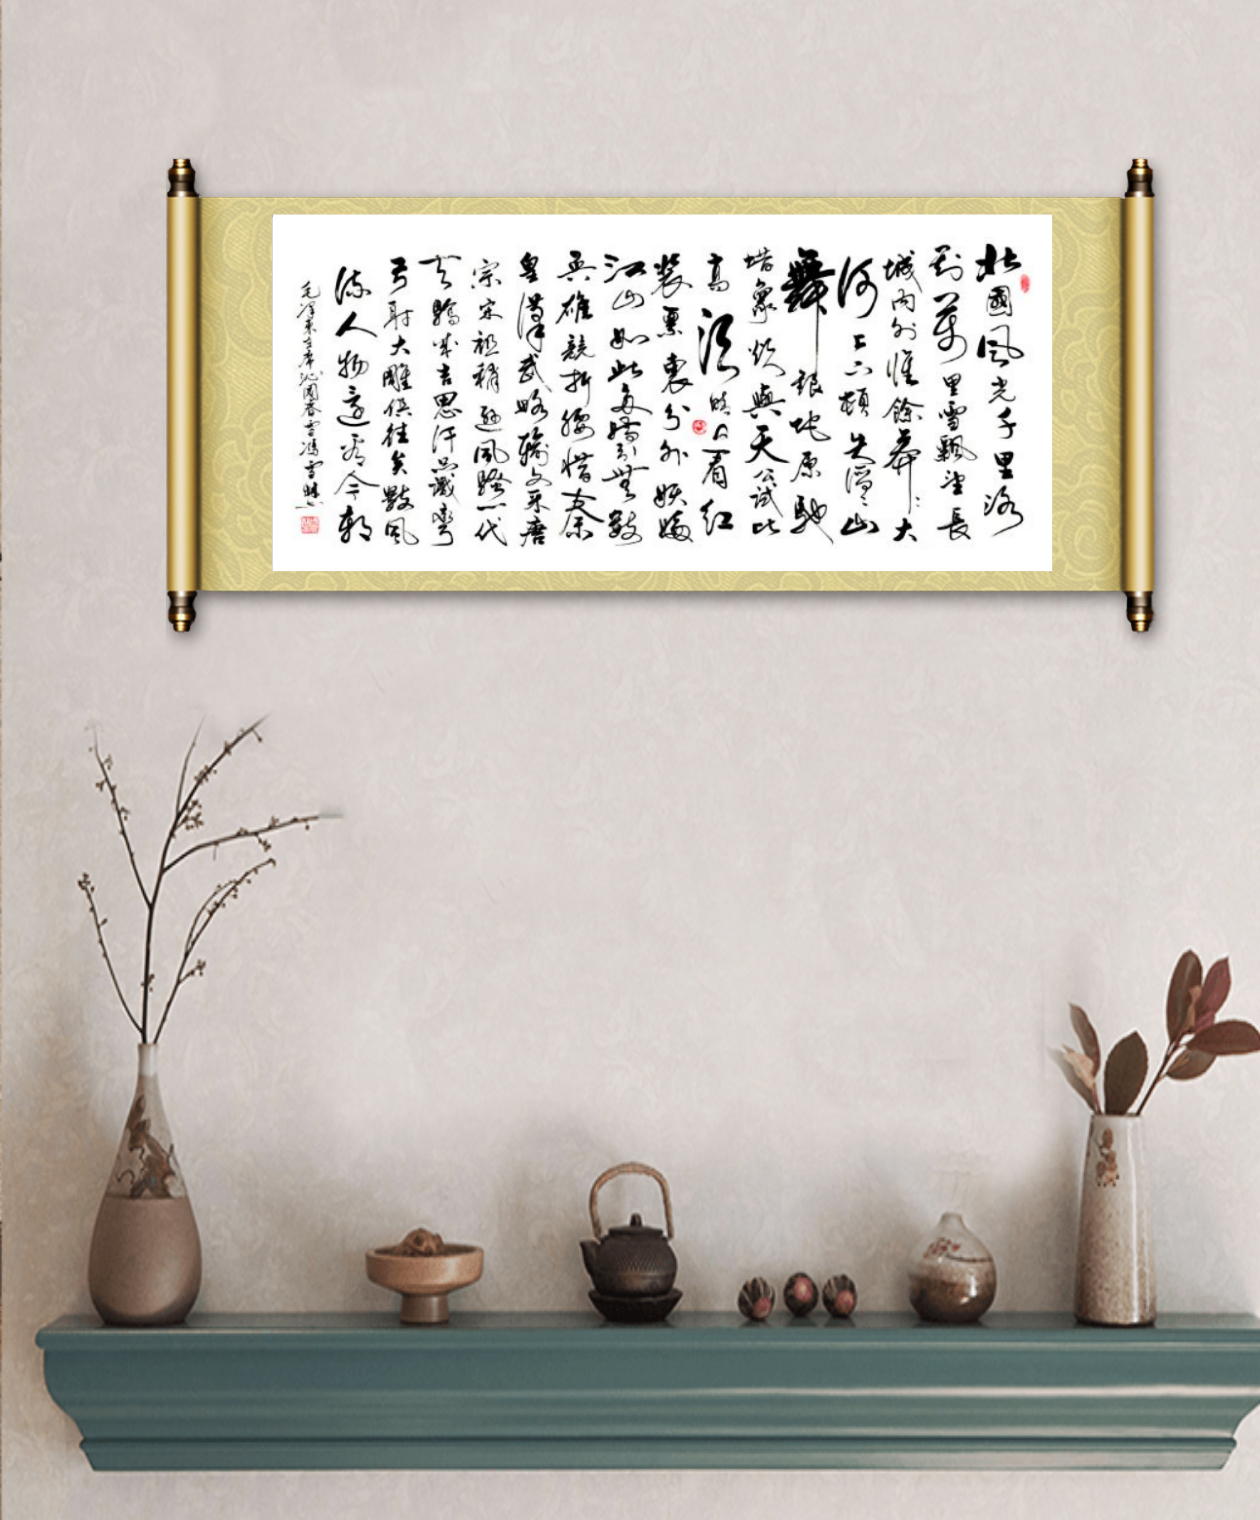 北國風光千里冰
封萬里雪飄望長
城内外惟餘莽々大
河上下頓失滔々山
舞銀蛇原馳
蜡象欲與天公試比
高須晴日看紅
裝素裹分外妖嬈
江山如此多嬌引無數
英雄競折腰惜秦
皇漢武略輸文采唐
宗宋祖稍遜風騷一代
天驕成吉思汗只識彎
弓射大雕俱往矣數風
流人物還看今朝
毛澤東主席沁園春雪馮雪林